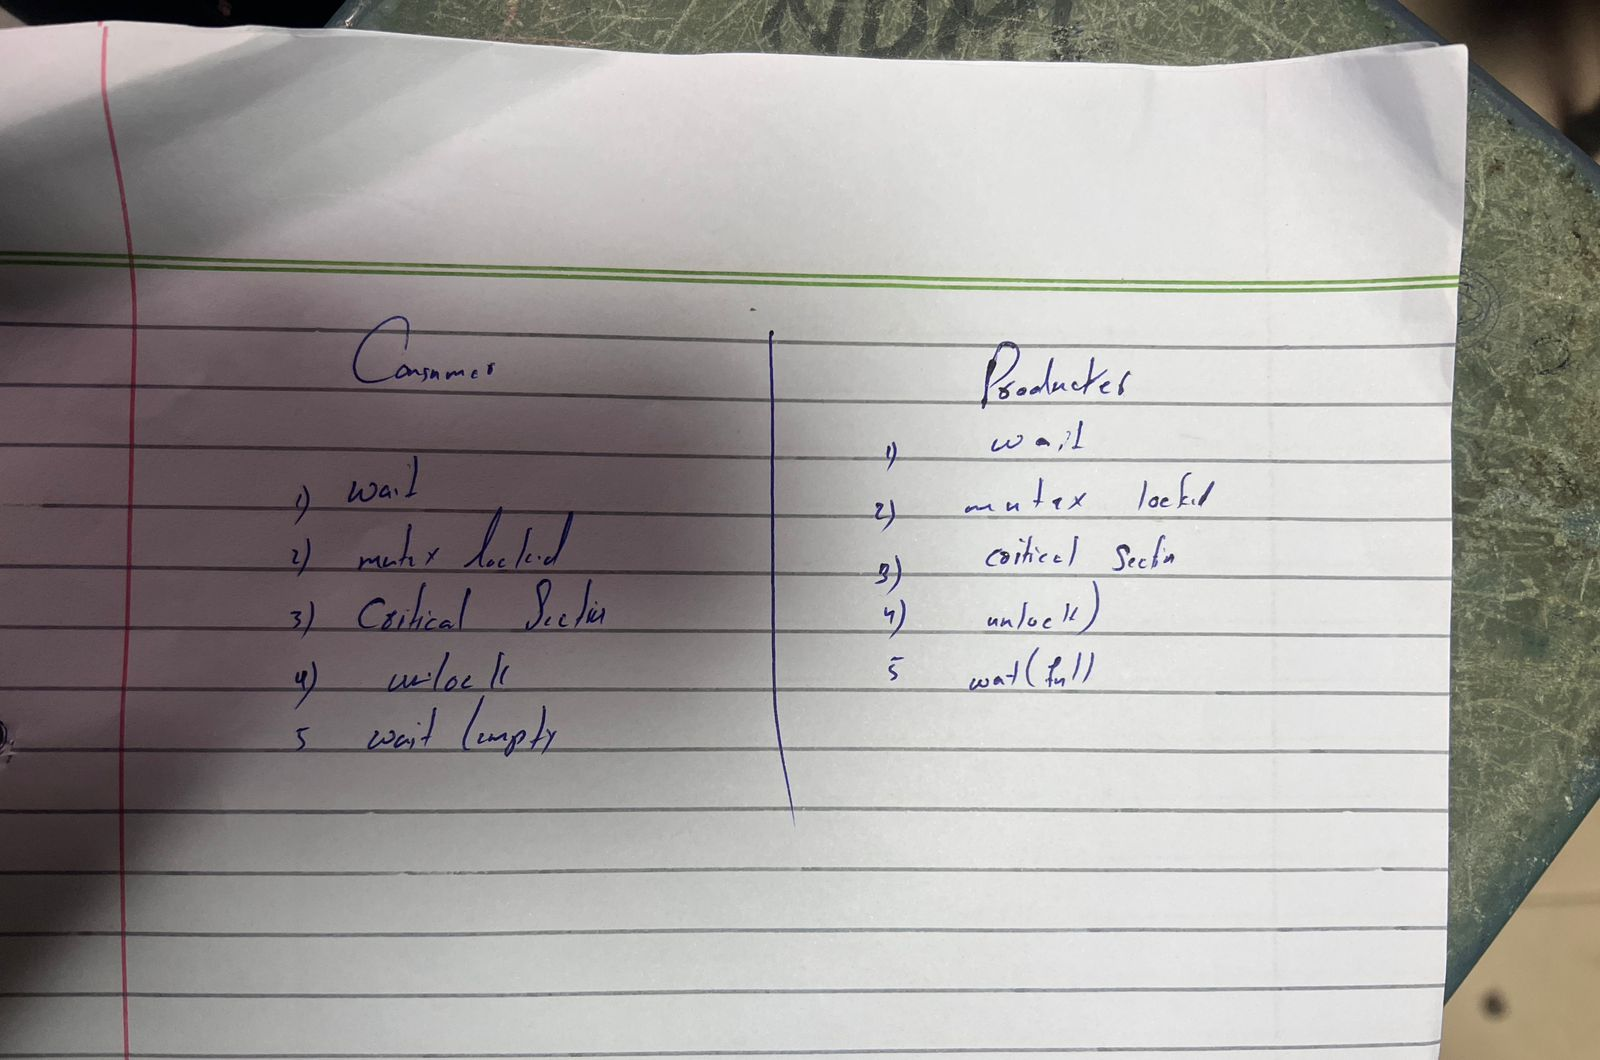 Consumer
1) wait
2) mutex locked
3) Critical Section
4) unlock
5 wait (empty
Producter
1) wait
2) mutex locked
3) critical Section
4) unlock)
5 wat(full